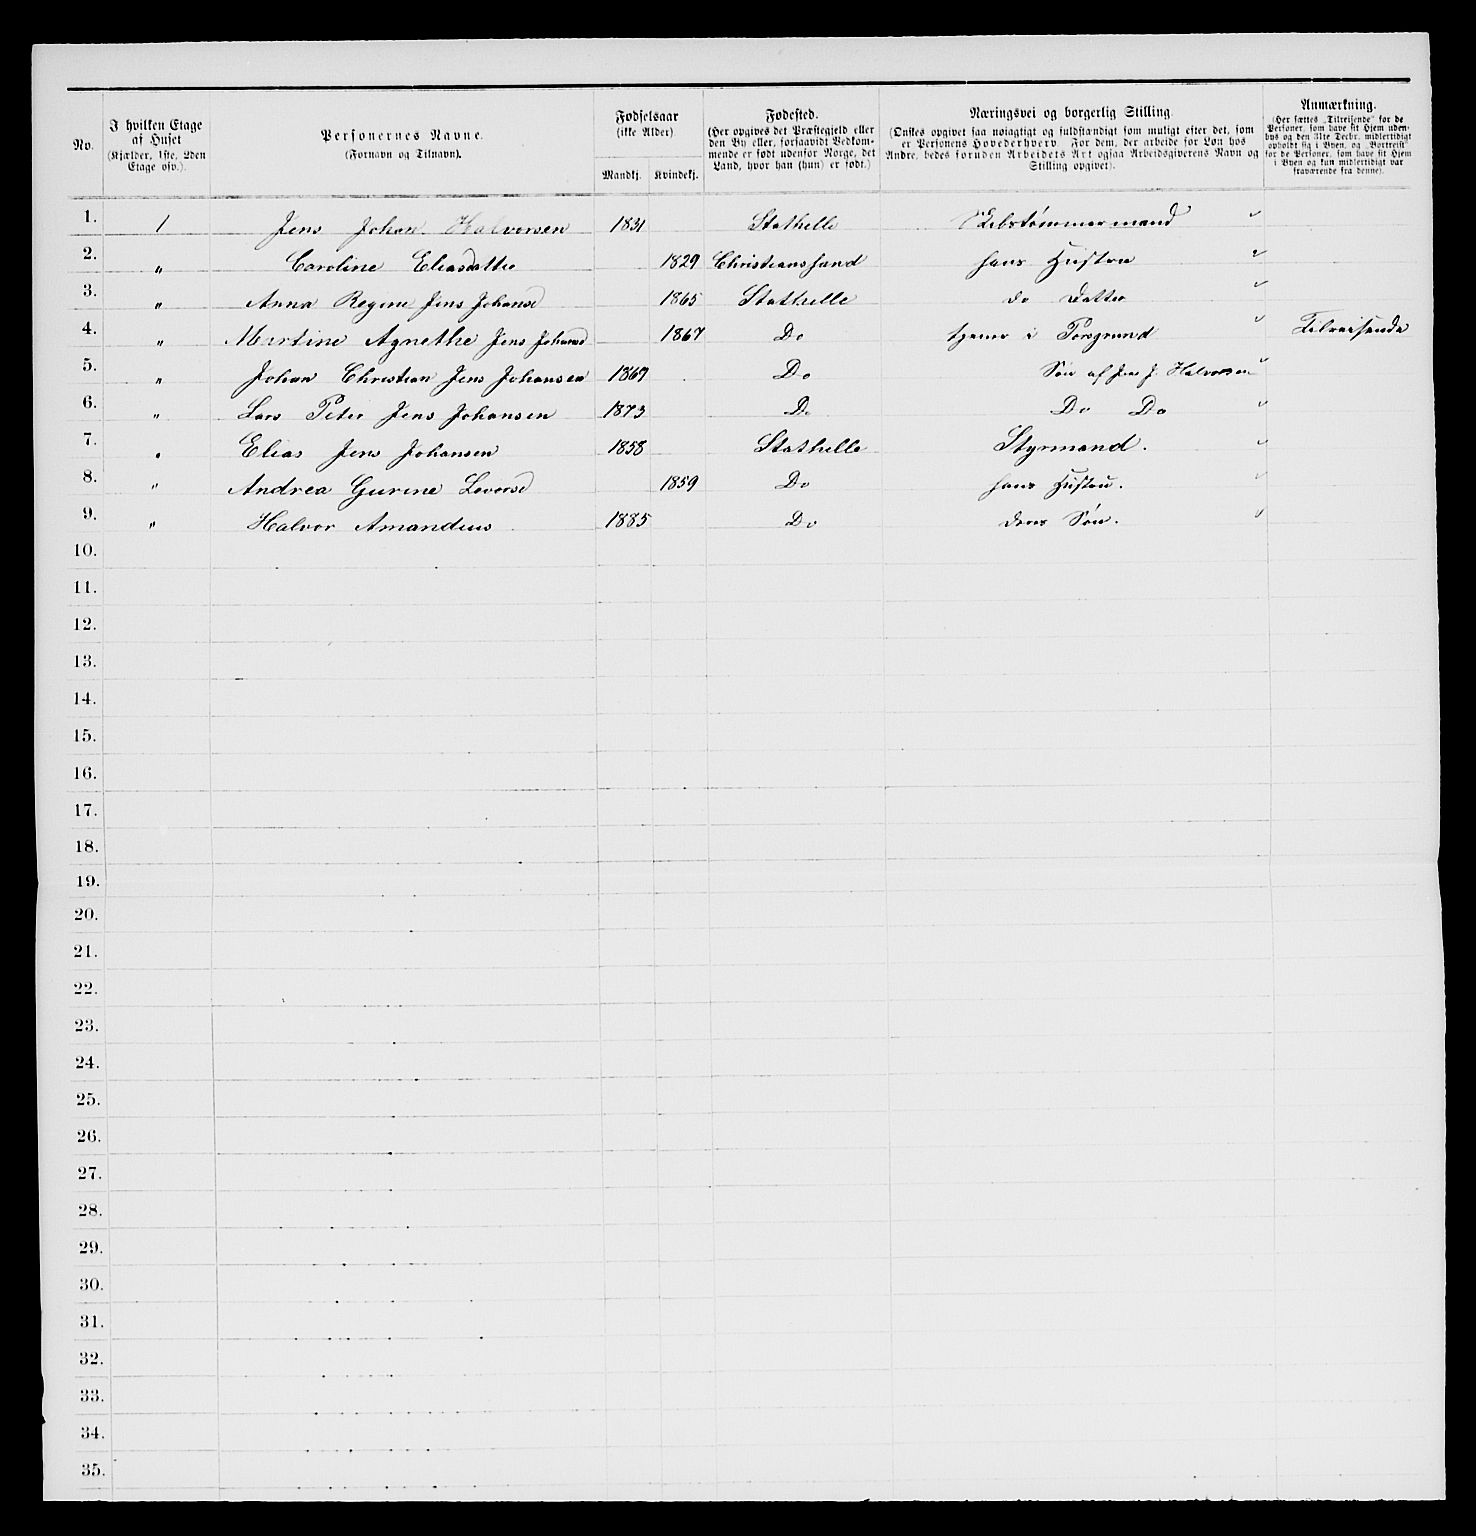 No.
I hvilken Etage
af Huset
(Kjælder, 1ste, 2den
Etage osv.).
Personernes Navne.
(Fornavn og Tilnavn).
Fødselsaar
(ikke Alder)
Mandkj. Kvindekj.
Fødested.
(Her opgives det Præstegjeld eller
den By eller, forsaavidt Vedkom-
mende er født udenfor Norge, det
Land, hvor han (hun) er født.)
Næringsvei og borgerlig Stilling.
(Ønskes opgivet saa nøiagtigt og fuldstændigt som muligt efter det, som
er Personens Hovederhverv. For dem, der arbeide for Løn hos
Andre, bedes foruden Arbeidets Art ogsaa Arbeidsgiverens Navn og
Stilling opgivet).
Anmærkning.
(Her sættes „Tilreisende“ for de
Personer, som have sit Hjem uden-
bys og den 31te Decbr. midlertidigt
opholdt sig i Byen, og „Bortreist“
for de Personer, som have sit Hjem
i Byen og kun midlertidigt var
fraværende fra denne).
1. 1 Jens Johan Halvorsen 1831 Stathelle Skibstømmermand "
2. " Caroline Eliasdatter 1829 Christianssand hans Hustru "
3. " Anna Regine Jens Johansd 1865 Stathelle do Datter "
4. " Martine Agnethe Jens Johansd 1867 Do tjener i Porsgrund " Tilreisende
5. " Johan Christian Jens Johansen 1869 Do Søn af Jens J. Halvorsen "
6. " Lars Peter Jens Johansen 1873 Do Do Do "
7. " Elias Jens Johansen 1858 Stathelle Styrmand. "
8. " Andrea Gurine Leversd 1859 Do hans Hustru. "
9. " Halvor Amandius 1885 Do deres Søn. "
10.
11.
12.
13.
14.
15.
16.
17.
18.
19.
20.
21.
22.
23.
24.
25.
26.
27.
28.
29.
30.
31.
32.
33.
34.
35.